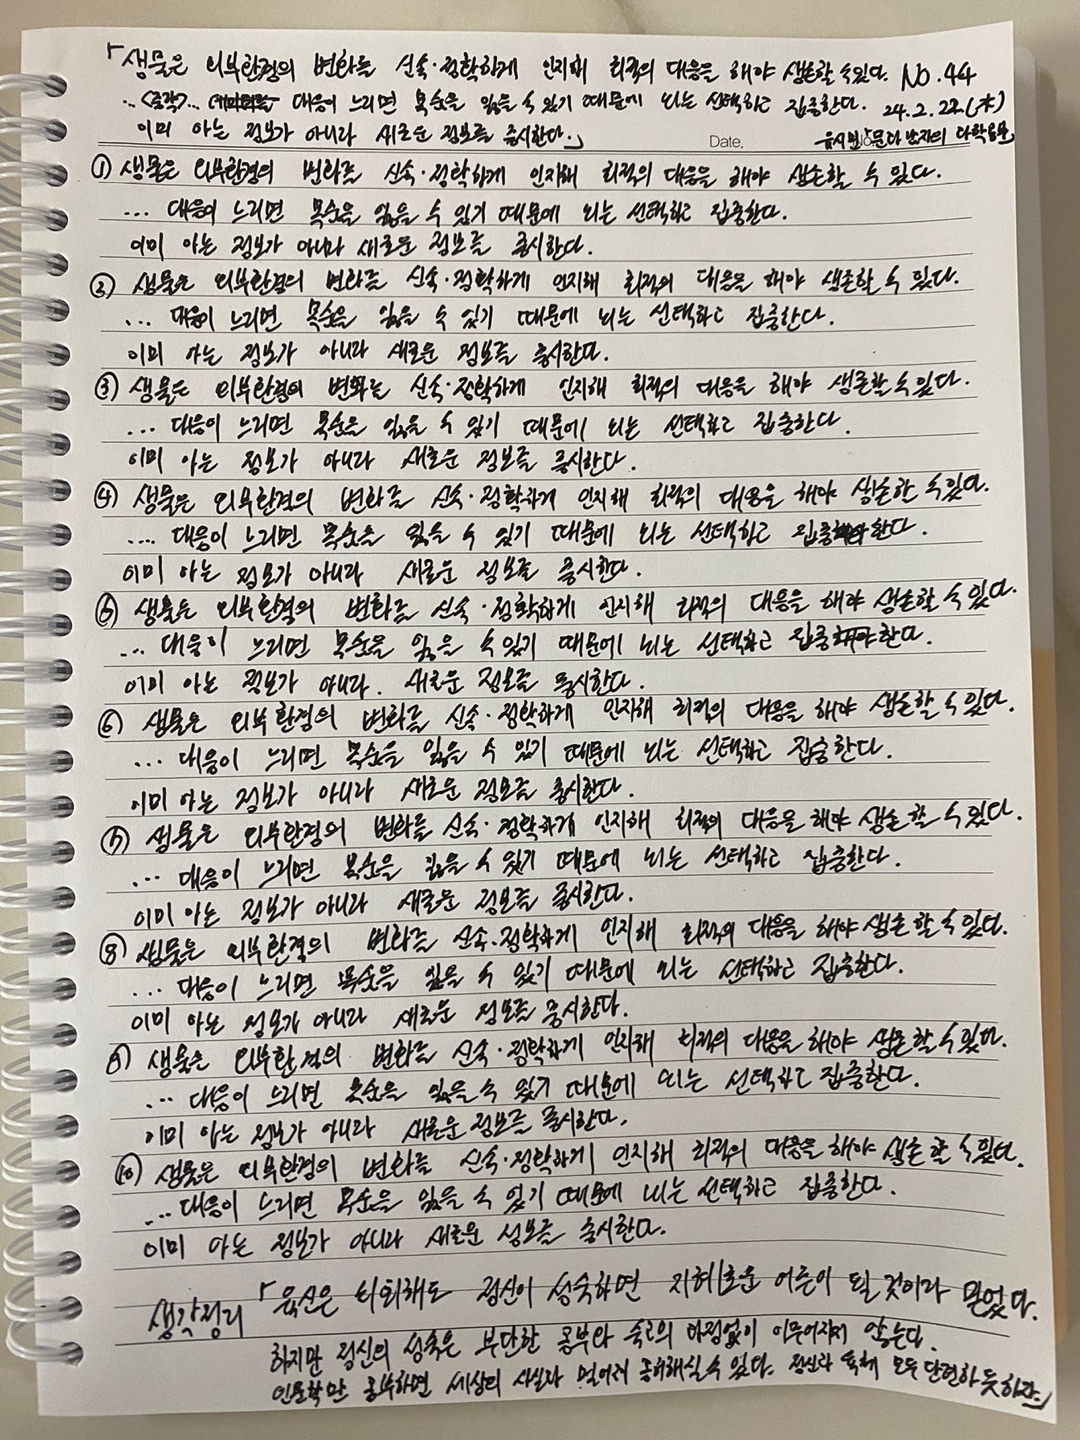 「생물은 외부환경의 변화를 신속·정확하게 인지해 최적의 대응을 해야 생존할 수 있다. No. 44
...<중략>... 대응이 느리면 목숨을 잃을 수 있기 때문에 뇌는 선택하고 집중한다. 24.2.22(木)
이미 아는 정보가 아니라 새로운 정보를 중시한다.」 Date. 유시민 문과 남자의 과학공부
① 생물은 외부환경의 변화를 신속·정확하게 인지해 최적의 대응을 해야 생존할 수 있다.
... 대응이 느리면 목숨을 잃을 수 있기 때문에 뇌는 선택하고 집중한다.
이미 아는 정보가 아니라 새로운 정보를 중시한다.
② 생물은 외부환경의 변화를 신속·정확하게 인지해 최적의 대응을 해야 생존할 수 있다.
... 대응이 느리면 목숨을 잃을 수 있기 때문에 뇌는 선택하고 집중한다.
이미 아는 정보가 아니라 새로운 정보를 중시한다.
③ 생물은 외부환경의 변화는 신속·정확하게 인지해 최적의 대응을 해야 생존할 수 있다.
... 대응이 느리면 목숨을 잃을 수 있기 때문에 뇌는 선택하고 집중한다.
이미 아는 정보가 아니라 새로운 정보를 중시한다.
④ 생물은 외부환경의 변화를 신속·정확하게 인지해 최적의 대응을 해야 생존할 수 있다.
... 대응이 느리면 목숨을 잃을 수 있기 때문에 뇌는 선택하고 집중한다.
이미 아는 정보가 아니라 새로운 정보를 중시한다.
⑤ 생물은 외부환경의 변화를 신속·정확하게 인지해 최적의 대응을 해야 생존할 수 있다.
... 대응이 느리면 목숨을 잃을 수 있기 때문에 뇌는 선택하고 집중한다.
이미 아는 정보가 아니라. 새로운 정보를 중시한다.
⑥ 생물은 외부환경의 변화를 신속·정확하게 인지해 최적의 대응을 해야 생존할 수 있다.
... 대응이 느리면 목숨을 잃을 수 있기 때문에 뇌는 선택하고 집중한다.
이미 아는 정보가 아니라 새로운 정보를 중시한다.
⑦ 생물은 외부환경의 변화를 신속·정확하게 인지해 최적의 대응을 해야 생존할 수 있다.
... 대응이 느리면 목숨을 잃을 수 있기 때문에 뇌는 선택하고 집중한다.
이미 아는 정보가 아니라 새로운 정보를 중시한다.
⑧ 생물은 외부환경의 변화를 신속·정확하게 인지해 최적의 대응을 해야 생존할 수 있다.
... 대응이 느리면 목숨을 잃을 수 있기 때문에 뇌는 선택하고 집중한다.
이미 아는 정보가 아니라 새로운 정보를 중시한다.
⑨ 생물은 외부환경의 변화를 신속·정확하게 인지해 최적의 대응을 해야 생존할 수 있다.
... 대응이 느리면 목숨을 잃을 수 있기 때문에 뇌는 선택하고 집중한다.
이미 아는 정보가 아니라 새로운 정보를 중시한다.
⑩ 생물은 외부환경의 변화를 신속·정확하게 인지해 최적의 대응을 해야 생존할 수 있다.
... 대응이 느리면 목숨을 잃을 수 있기 때문에 뇌는 선택하고 집중한다.
이미 아는 정보가 아니라 새로운 정보를 중시한다.
생각정리 「육신은 퇴화해도 정신이 성숙하면 지혜로운 어른이 될 것이라 믿었다.
하지만 정신의 성숙은 부단한 공부와 숙고의 과정없이 이루어지지 않는다.
인문학만 공부하면 세상의 사실과 멀어져 공허해질 수 있다. 정신과 육체 모두 단련하듯 하자.」